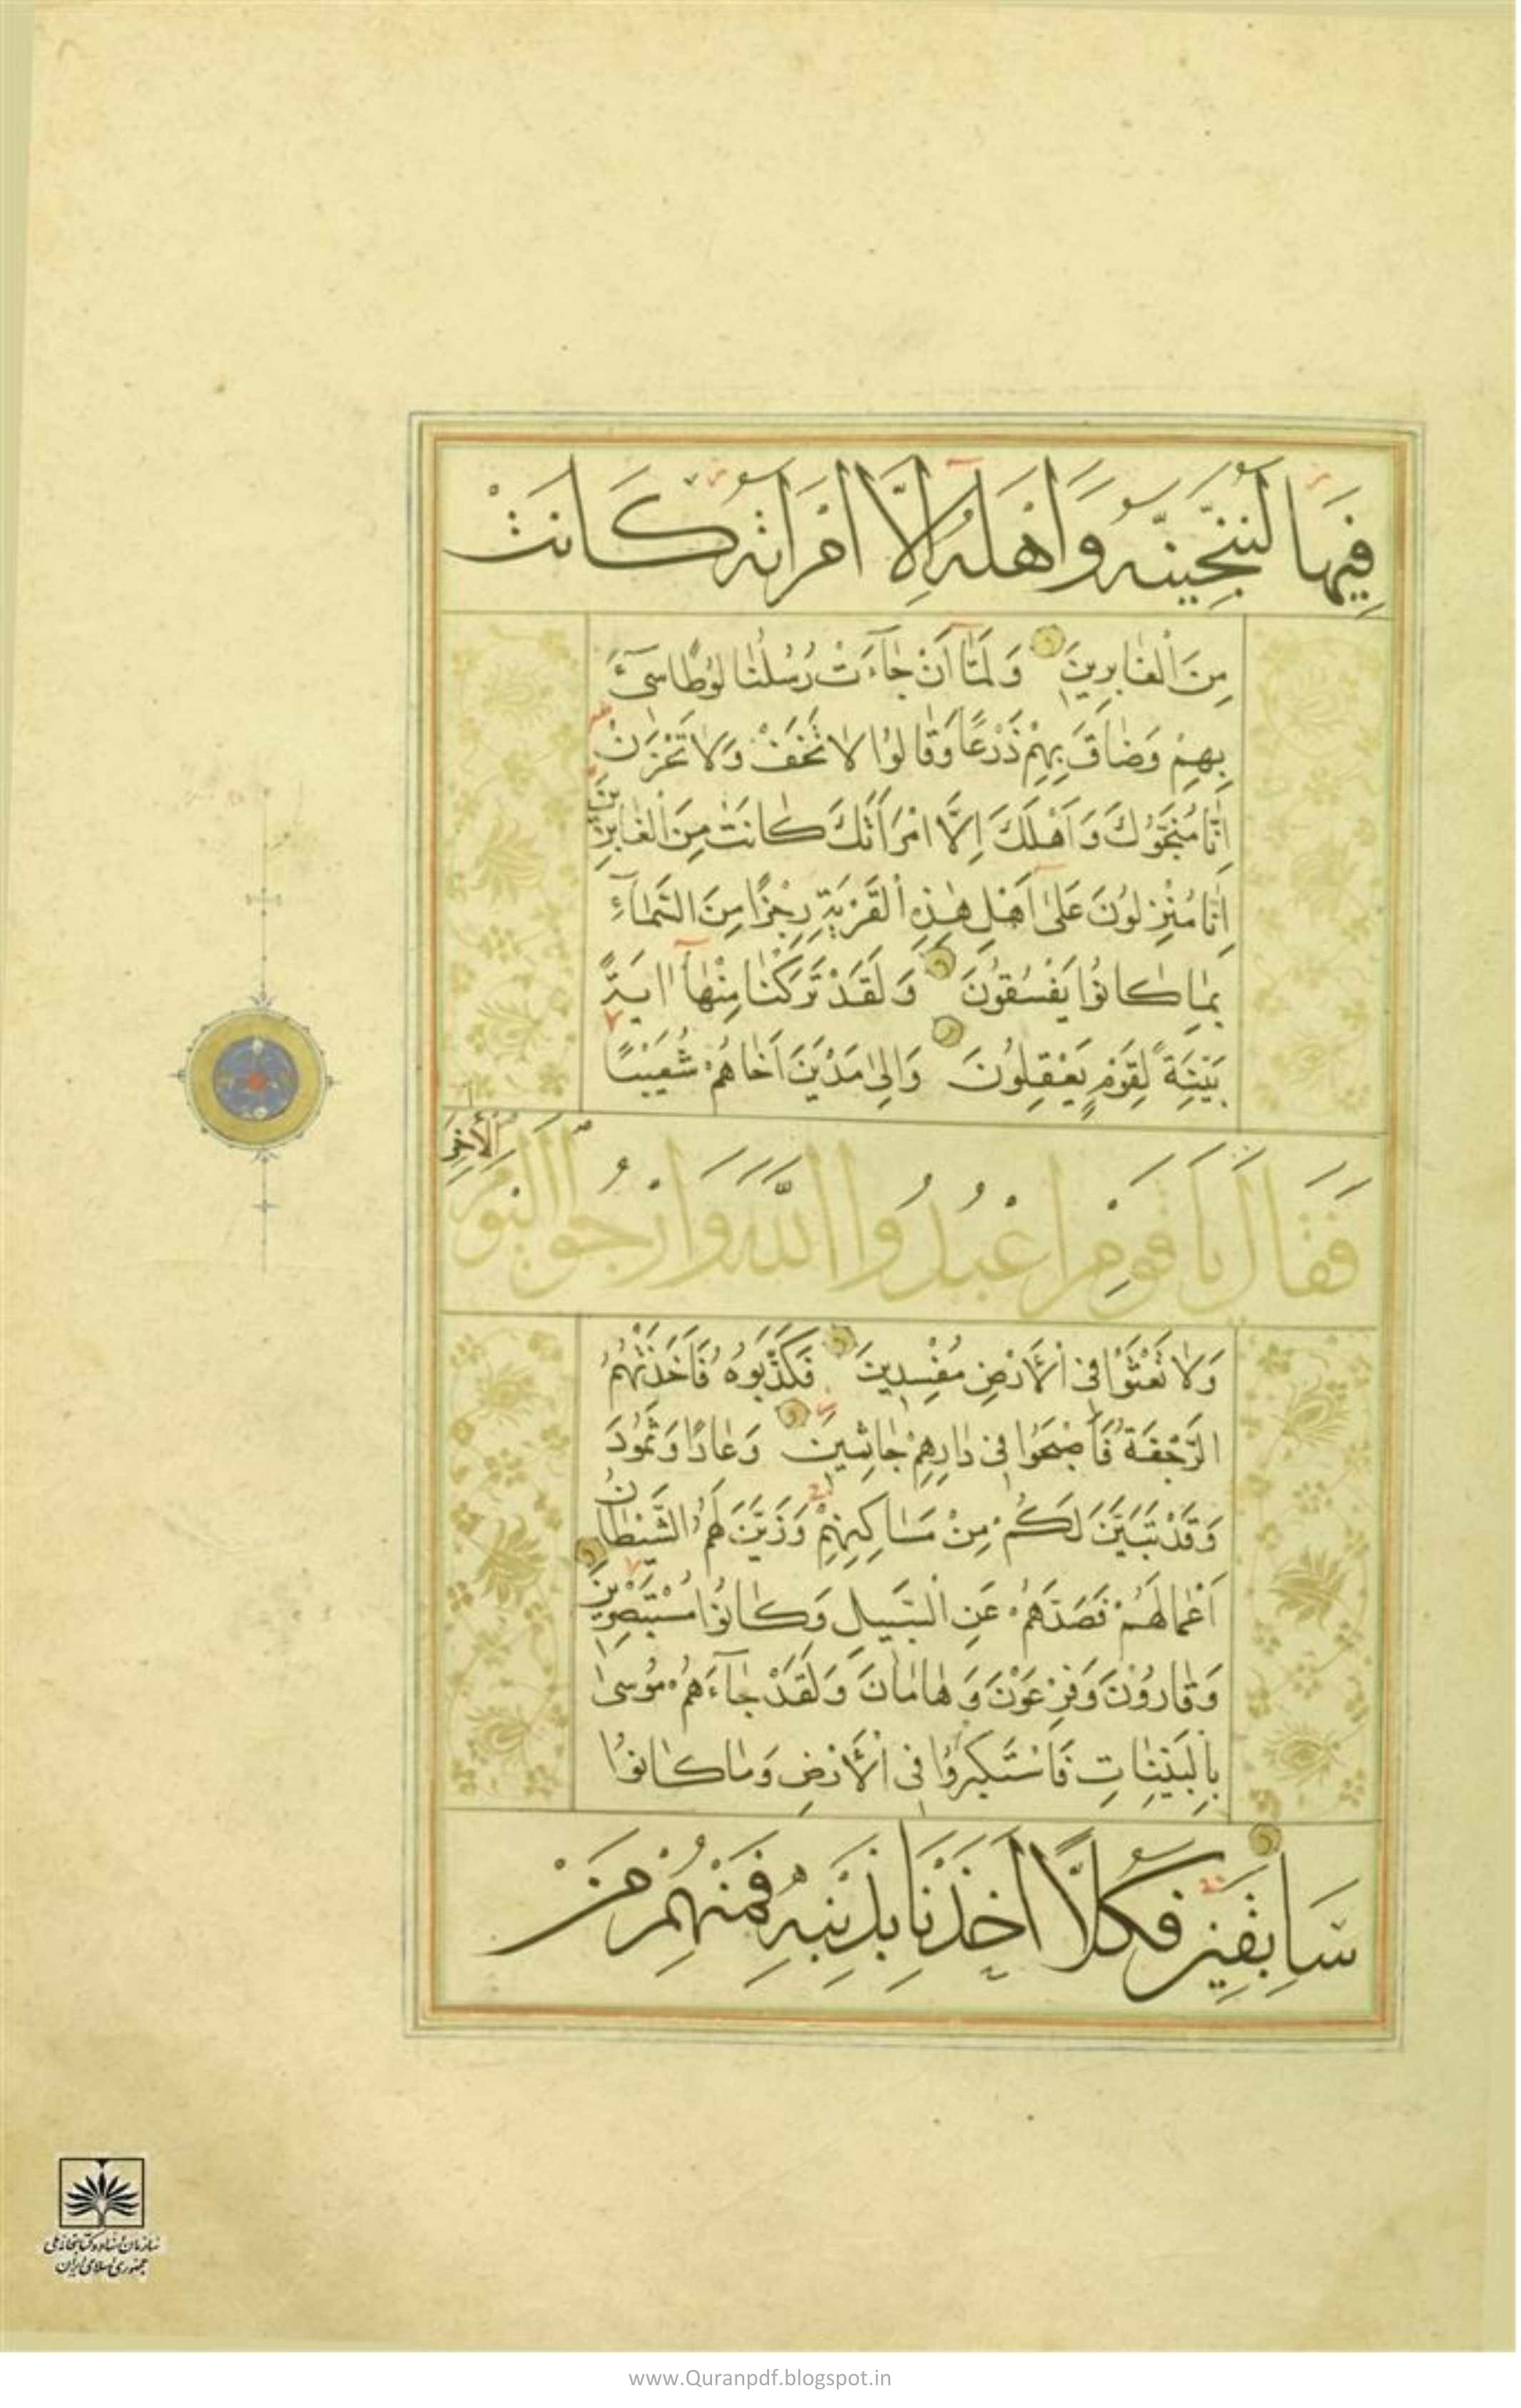 فِيهَا لَنُنَجِّيَنَّهُ وَأَهْلَهُ إِلَّا امْرَأَتَهُ كَانَتْ
مِنَ الْغَابِرِينَ وَلَمَّا أَنْ جَاءَتْ رُسُلُنَا لُوطًا سِيءَ
بِهِمْ وَضَاقَ بِهِمْ ذَرْعًا وَقَالُوا لَا تَخَفْ وَلَا تَحْزَنْ
إِنَّا مُنَجُّوكَ وَأَهْلَكَ إِلَّا امْرَأَتَكَ كَانَتْ مِنَ الْغَابِرِينَ
إِنَّا مُنْزِلُونَ عَلَى أَهْلِ هَذِهِ الْقَرْيَةِ رِجْزًا مِنَ السَّمَاءِ
بِمَا كَانُوا يَفْسُقُونَ وَلَقَدْ تَرَكْنَا مِنْهَا آيَةً
بَيِّنَةً لِقَوْمٍ يَعْقِلُونَ وَإِلَى مَدْيَنَ أَخَاهُمْ شُعَيْبًا
فَقَالَ يَا قَوْمِ اعْبُدُوا اللَّهَ وَارْجُوا الْيَوْمَ الْآخِرَ
وَلَا تَعْثَوْا فِي الْأَرْضِ مُفْسِدِينَ فَكَذَّبُوهُ فَأَخَذَتْهُمُ
الرَّجْفَةُ فَأَصْبَحُوا فِي دَارِهِمْ جَاثِمِينَ وَعَادًا وَثَمُودَ
وَقَدْ تَبَيَّنَ لَكُمْ مِنْ مَسَاكِنِهِمْ وَزَيَّنَ لَهُمُ الشَّيْطَانُ
أَعْمَالَهُمْ فَصَدَّهُمْ عَنِ السَّبِيلِ وَكَانُوا مُسْتَبْصِرِينَ
وَقَارُونَ وَفِرْعَوْنَ وَهَامَانَ وَلَقَدْ جَاءَهُمْ مُوسَى
بِالْبَيِّنَاتِ فَاسْتَكْبَرُوا فِي الْأَرْضِ وَمَا كَانُوا
سَابِقِينَ فَكُلًّا أَخَذْنَا بِذَنْبِهِ فَمِنْهُمْ مَنْ
سازمان اسناد و کتابخانه ملی
جمهوری اسلامی ایران
www.Quranpdf.blogspot.in